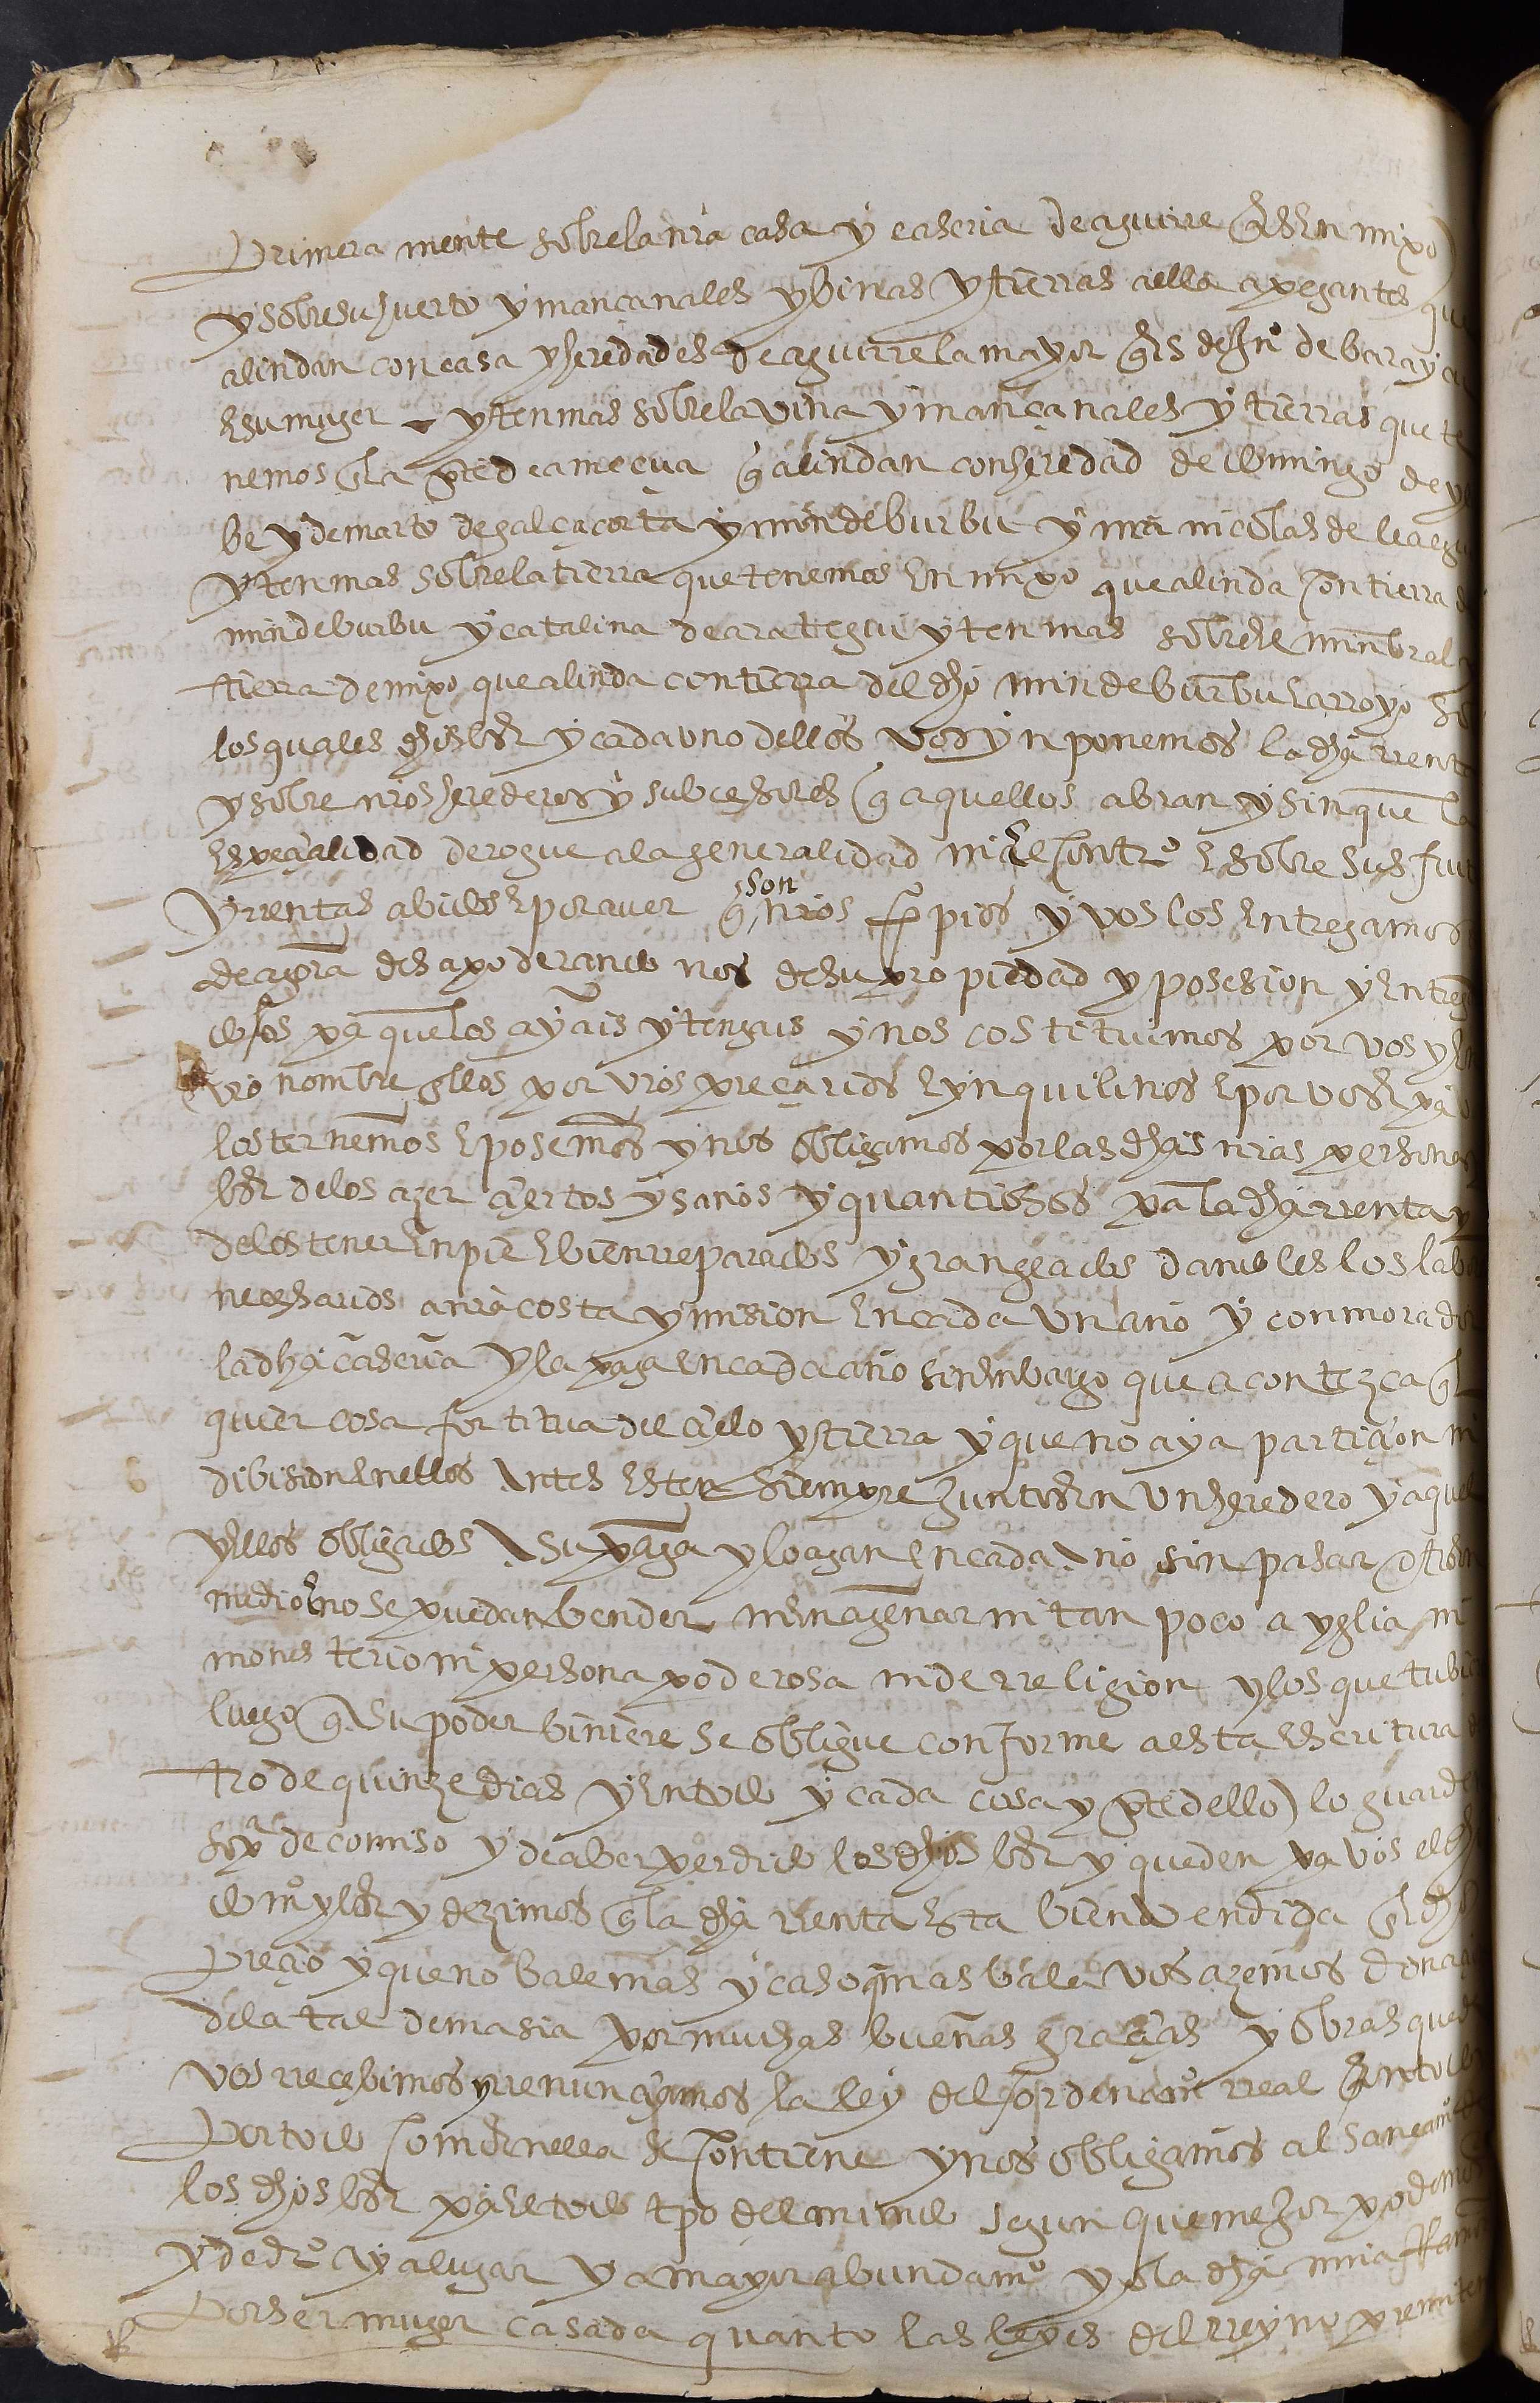 Primera mente sobre la nrã casa y caseria de aguirre q̃ es en mixo
y sobre su huerto y mançanales y binas y tierras a ella apegantes que
alindan con casa y heredades de aguirre la mayor q̃ es de Jnº de baraya
e su muger - yten mas sobre la viña y mançanales y tierras que te
nemos en la pte de amecua q̃ alindan con heredad de domingo de
be y de marto de galçacorta y min de burbu y mrã nicolas de
yten mas sobre la tierra que tenemos en mixo que alinda con tierra de
min de burbu y catalina de arategui yten mas sobre el minbral
tierra de mixo que alinda con tierra del dho min de burbu e arroyo so
los quales dhos bs y cada uno dellos vos ynponemos la dha rrenta
y sobre nros herederos y subcesores q̃ aquellos abran y sin que la
espeçialidad derogue a la generalidad ni a el contrº e sobre sus frut
y rrentas abidos e por aver q̃ son nros propios y vos los entregamos
de agora desapoderando nos de su propiedad y posesion y entreg
dolos pa que los ayais y tengais y nos costituimos por vos y en
vro nombre dellos por vros preçarios e ynquilinos e por vos e pa
los ternemos e posemos y nos obligamos por las dhas nras personas
bs de los azer çiertos y sanos y quantiosos pa la dha rrenta y
de los tener en pie e bien rreparados y grangeados dandoles los labo
necesarios a nra costa y mision en cada un año y con morador
la dha caseria y la paga en cada año sin enbargo que acontezca q̃l
quier cosa fortitua de çielo y tierra y que no aya partiçion ni
dibision en ellos antes esten siempre juntos en un heredero y aquel
y ellos obligados a su paga y lo agan en cada año sin pasar
medio e no se puedan bender ni enagenar ni tan poco a yglia ni
monesterio ni persona poderosa ni de rreligion y los que tubie
luego q̃ a su poder biniere se obligue conforme a esta escritura
tro de quinze dias y en todo y cada cosa y pte dello lo guarde
so pª de comiso y de aber perdido los dhos bs y queden pa vos el dho
domº y bs y dezimos q̃ la dha rrenta esta bien vendida en el dho
Preçio y que no bale mas y caso q̃ mas bale vos azemos donaçi
de la tal demasia por muchas buenas graçias y obras que de
vos rreçebimos y rrenunçiamos la ley del hordenamº rreal en todo
Por todo como en ella se contiene y nos obligamos al saneamº
los dhos bs pa en todo tpo del mundo segun que mejor podemos
y de drº aya lugar y a mayor abundamº yo la dha mria
Por ser muger casada quanto las leyes del rreyno premiten